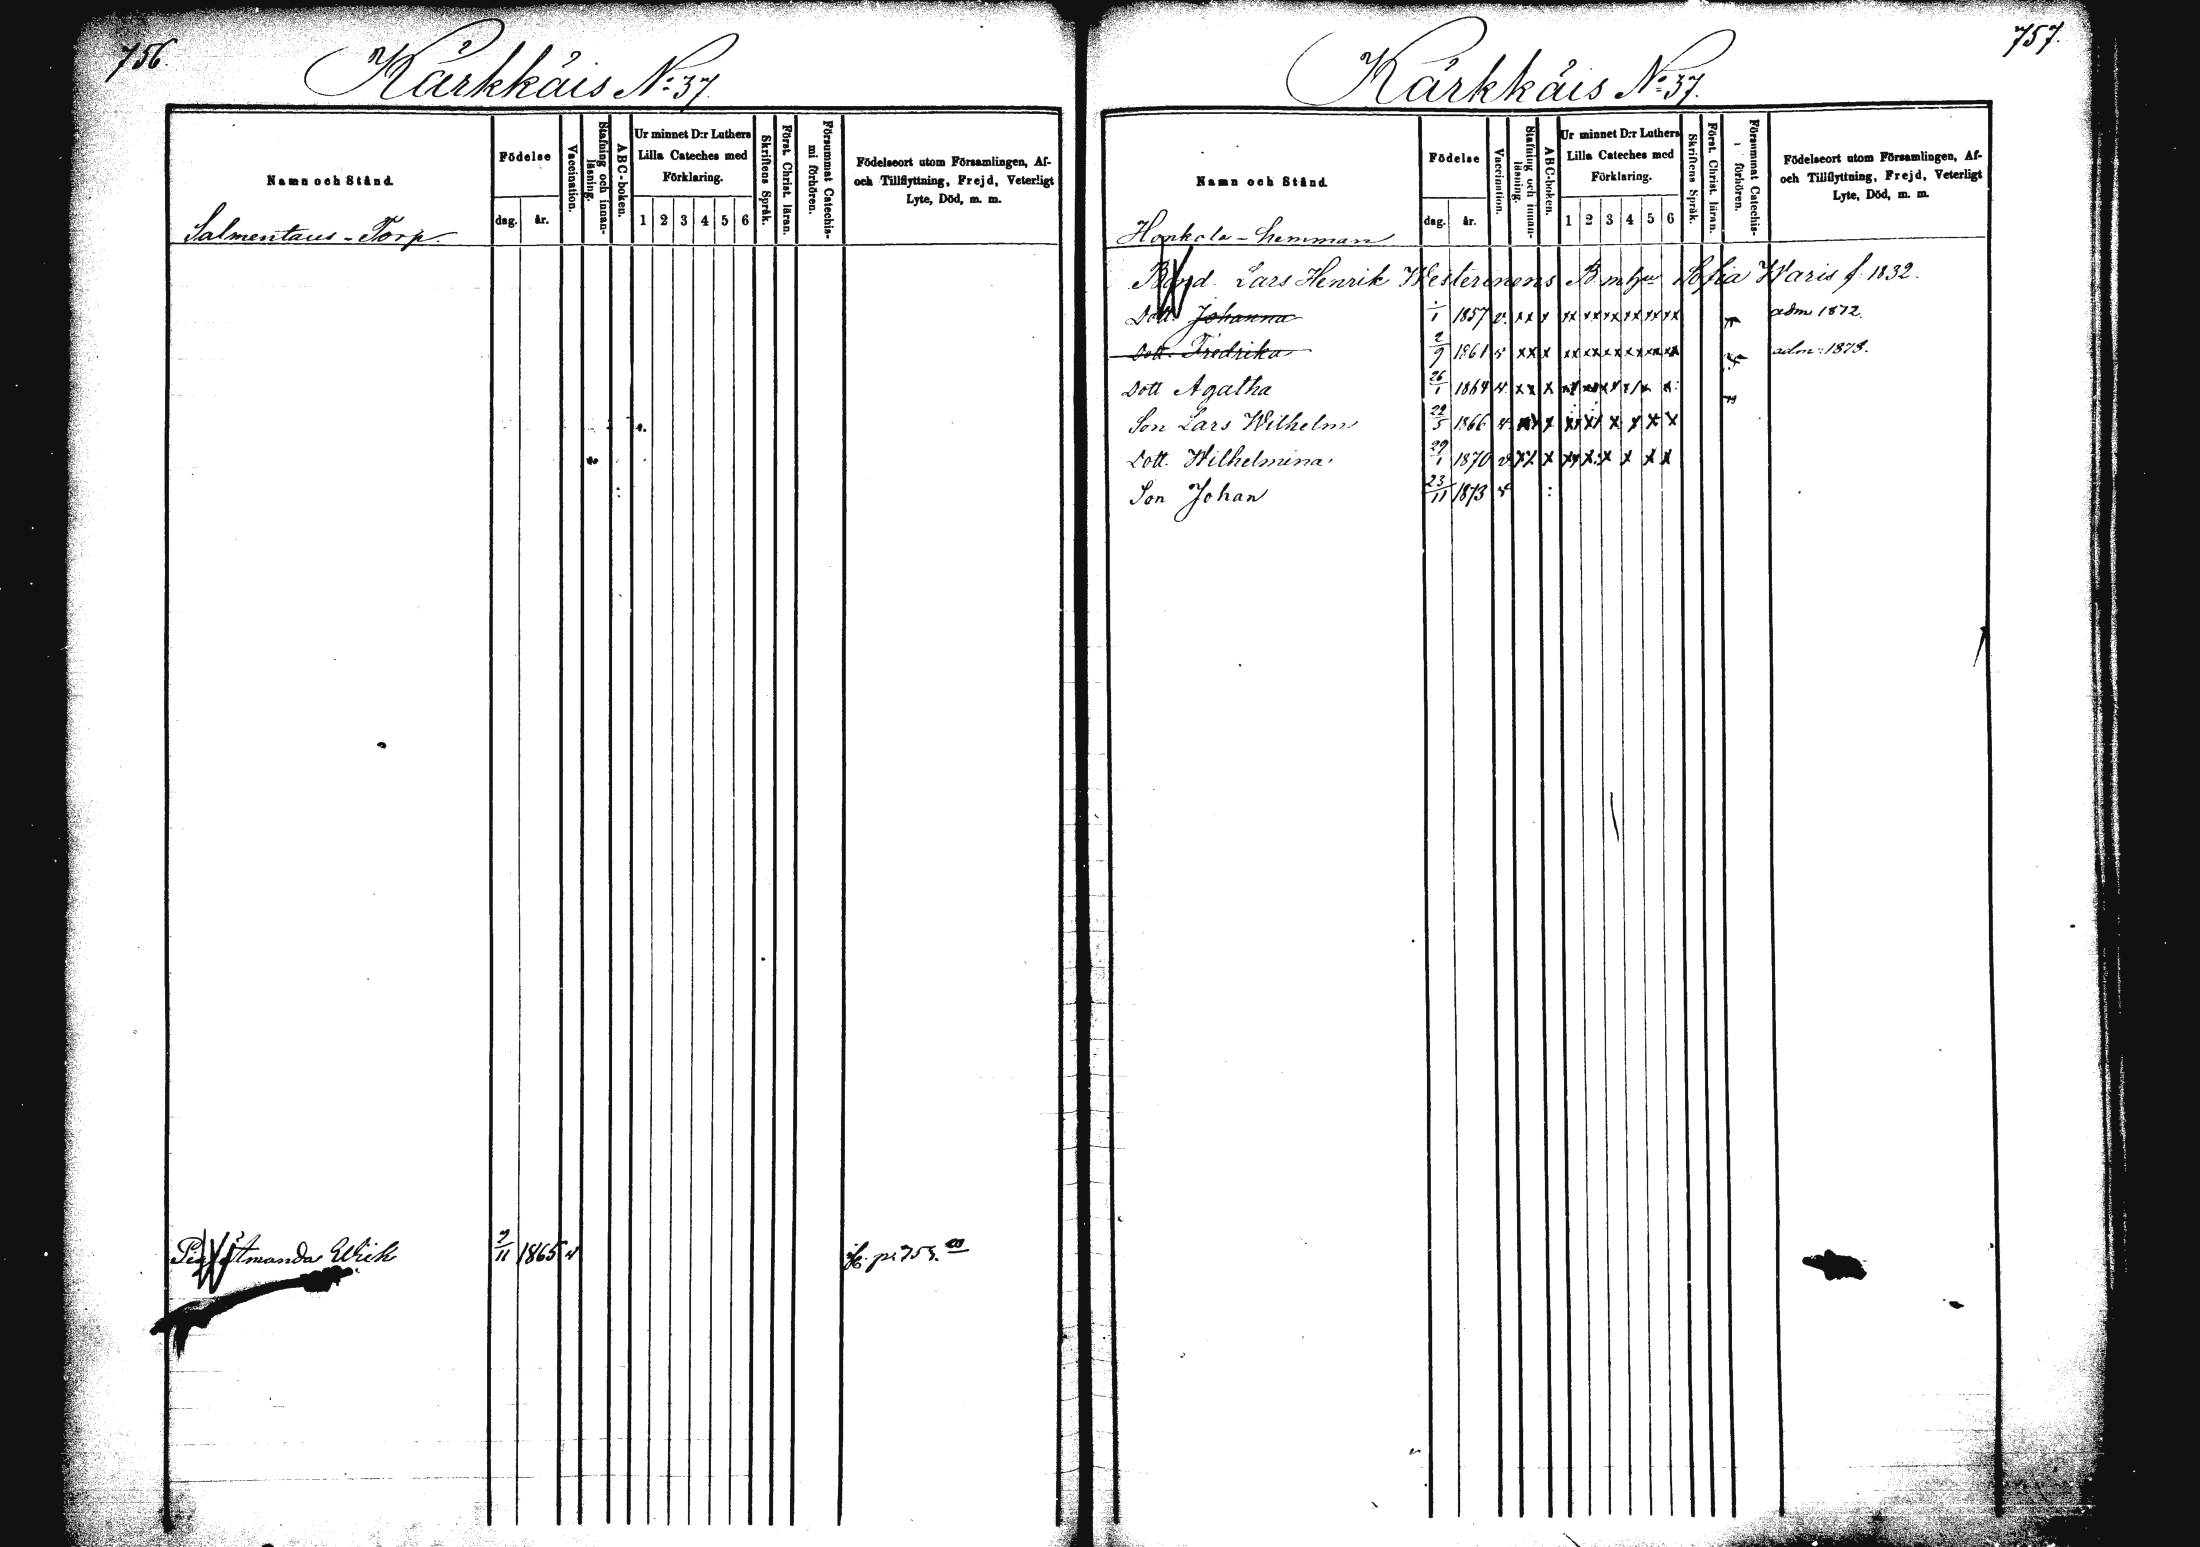 756.
Kärkkäis No 37
Namn och Stånd.
Födelse
dag.
år.
Vaccination.
Stafning och innan-
läsning.
ABC-boken.
Ur minnet D:r Luthers
Lilla Cateches med
Förklaring.
1 2 3 4 5 6
Skriftens Språk.
Först. Christ. läran.
Försummat Catechis-
mi förhören.
Födelseort utom Församlingen, Af-
och Tillflyttning, Frejd, Veterligt
Lyte, Död, m. m.
Salmentaus - Torp.
Amanda Wick 2/11 1865 v
757.
Kärkkäis No 37.
Namn och Stånd.
Födelse
dag.
år.
Vaccination.
Stafning och innan-
läsning.
ABC-boken.
Ur minnet D:r Luthers
Lilla Cateches med
Förklaring.
1 2 3 4 5 6
Skriftens Språk.
Först. Christ. läran.
Försummat Catechis-
förhören.
Födelseort utom Församlingen, Af-
och Tillflyttning, Frejd, Veterligt
Lyte, Död, m. m.
Honkola - hemman
Bond. Lars Henrik Westerinens Sofia Waris f. 1832.
Dott. Johanna 1857 v. xx x xx xx xx xx xx xx adm 1872.
Dott. Fredrika 2/9 1861 v xx x xx xx xx xx xx xx adm: 1878.
Dott Agatha 26/1 1864 v. xx x
Son Lars Wilhelm 22/5 1866 v. x
Dott. Wilhelmina 29/1 1870 v xx x xx x x x x x
Son Johan 23/11 1873 v